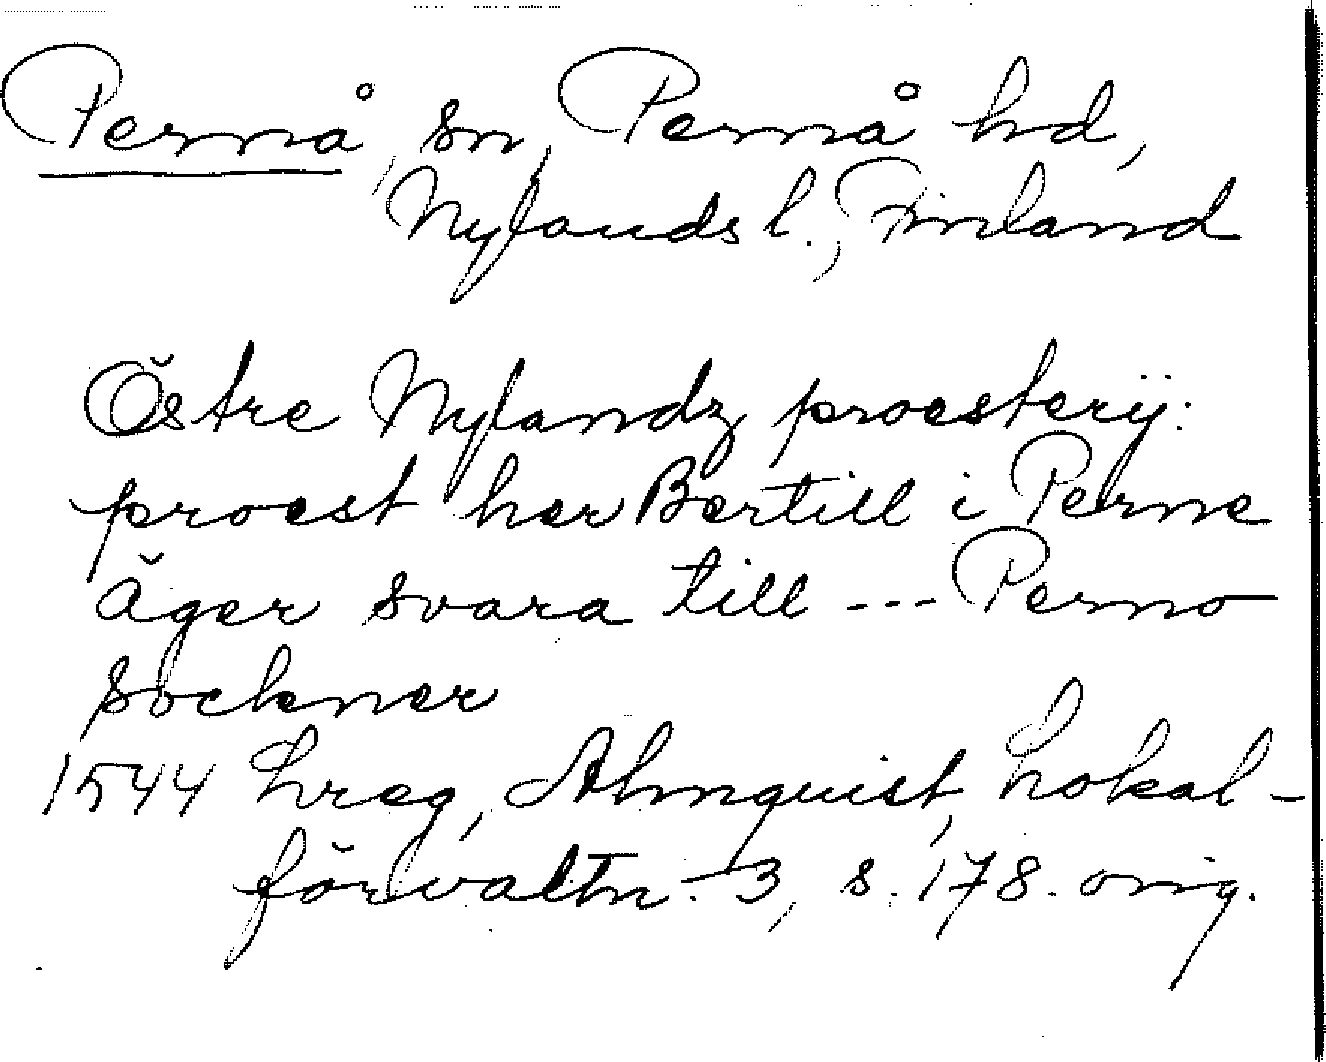 Pernå, sn, Pernå hd,
Nylands l., Finland
Östre Nylandz proesterij:
proest her Bertill i Perne
äger svara till --- Perno
sockner
1544 Lreg, Almquist, Lokal-
förvaltn. 3, s. 178. orig.